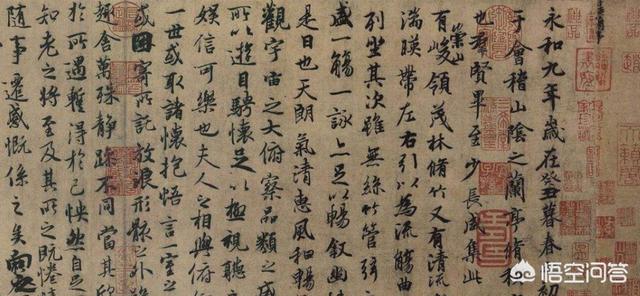 永和九年歲在癸丑暮春之初
于會稽山陰之蘭亭脩稧
也羣賢畢至少長咸集此
有崇山峻領茂林脩竹又有清流
湍暎帶左右引以為流觴曲
列坐其次雖無絲竹管弦
盛一觴一詠亦足以暢叙幽
是日也天朗氣清惠風和暢
觀宇宙之大俯察品類之盛
所以遊目騁懷足以極視聽之
娛信可樂也夫人之相與俯
一世或取諸懷抱悟言一室之
或因寄所託放浪形骸之外
趣舍萬殊靜躁不同當其欣
於所遇蹔得於己怏然自足
知老之將至及其所之既惓
隨事遷感慨係之矣向
悟空问答